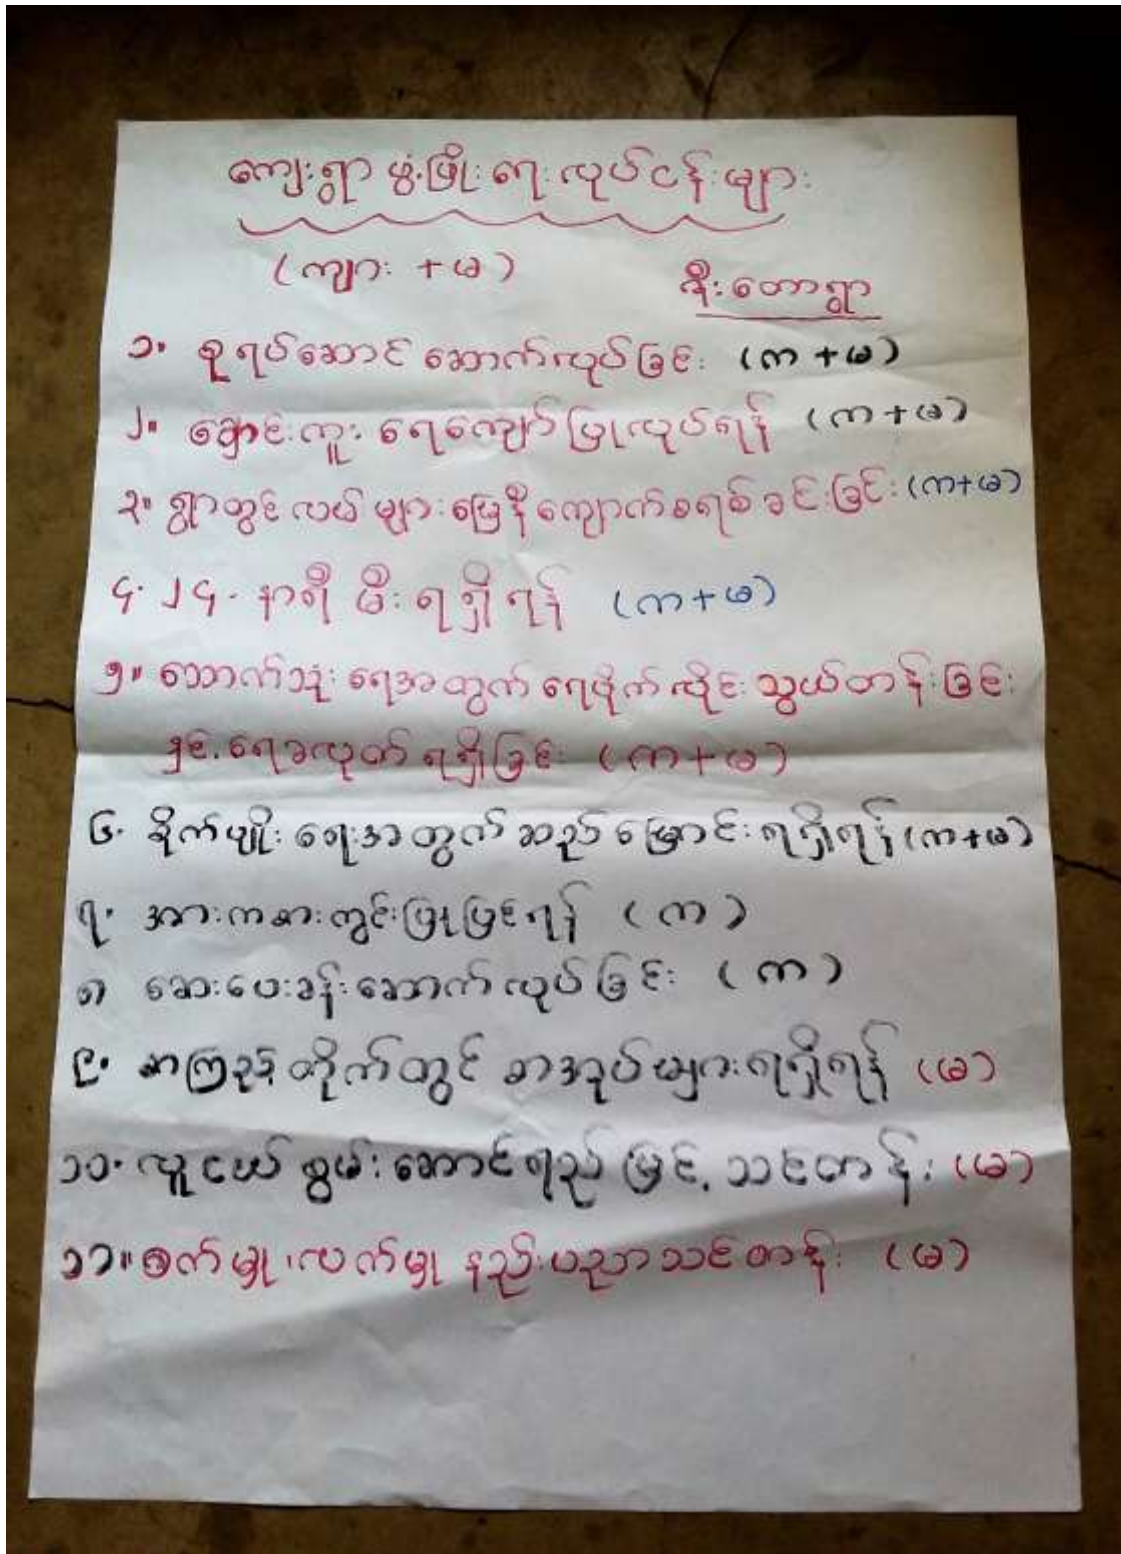 ကျေးရွာ ဖွံ့ဖြိုးရေး လုပ်ငန်းများ
(ကျား + မ)
ဇီးတောရွာ
၁။ စုရပ်ဆောင် ဆောက်လုပ်ခြင်း (က + မ)
၂။ ချောင်းကူး ရေကျော် ပြုလုပ်ရန် (က + မ)
၃။ ရွာတွင်း လမ်းများ မြေနီ ကျောက်စရစ် ခင်းခြင်း (က+မ)
၄. ၂၄. နာရီ မီး ရရှိရန် (က+မ)
၅။ သောက်သုံး ရေအတွက် ရေပိုက် လိုင်း သွယ်တန်းခြင်း
နှင့် ရေခလုတ် ရရှိခြင်း (က+မ)
၆. စိုက်ပျိုး ရေးအတွက် ဆည် မြောင်း ရရှိရန် (က+မ)
၇. အားကစားကွင်း ပြုပြင်ရန် (က)
၈ ဆေးပေးခန်း ဆောက်လုပ်ခြင်း (က)
၉. စာကြည့်တိုက်တွင် စာအုပ်များ ရရှိရန် (မ)
၁၀. လူငယ် စွမ်းဆောင်ရည် မြှင့် သင်တန်း (မ)
၁၁။ စက်မှု၊ လက်မှု နည်းပညာ သင်တန်း (မ)